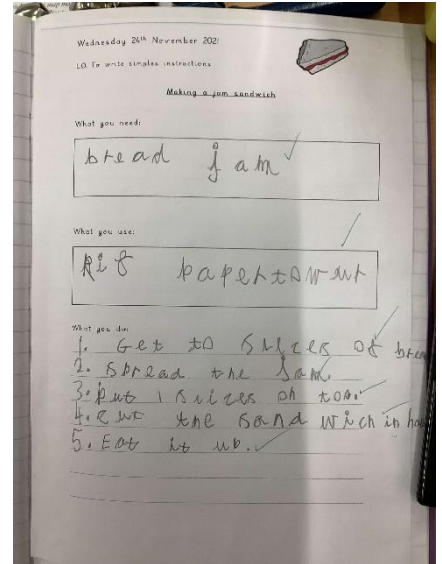 Wednesday 24th November 2021
LO. To write simples instructions
Making a jam sandwich
What you need:
bread jam
What you use:
kif papertowut
What you do:
1. Get to slizes of brea
2. spread the jam.
3. put 1 slizes on top.
4. cut the sandwich in ha
5. Eat it up.